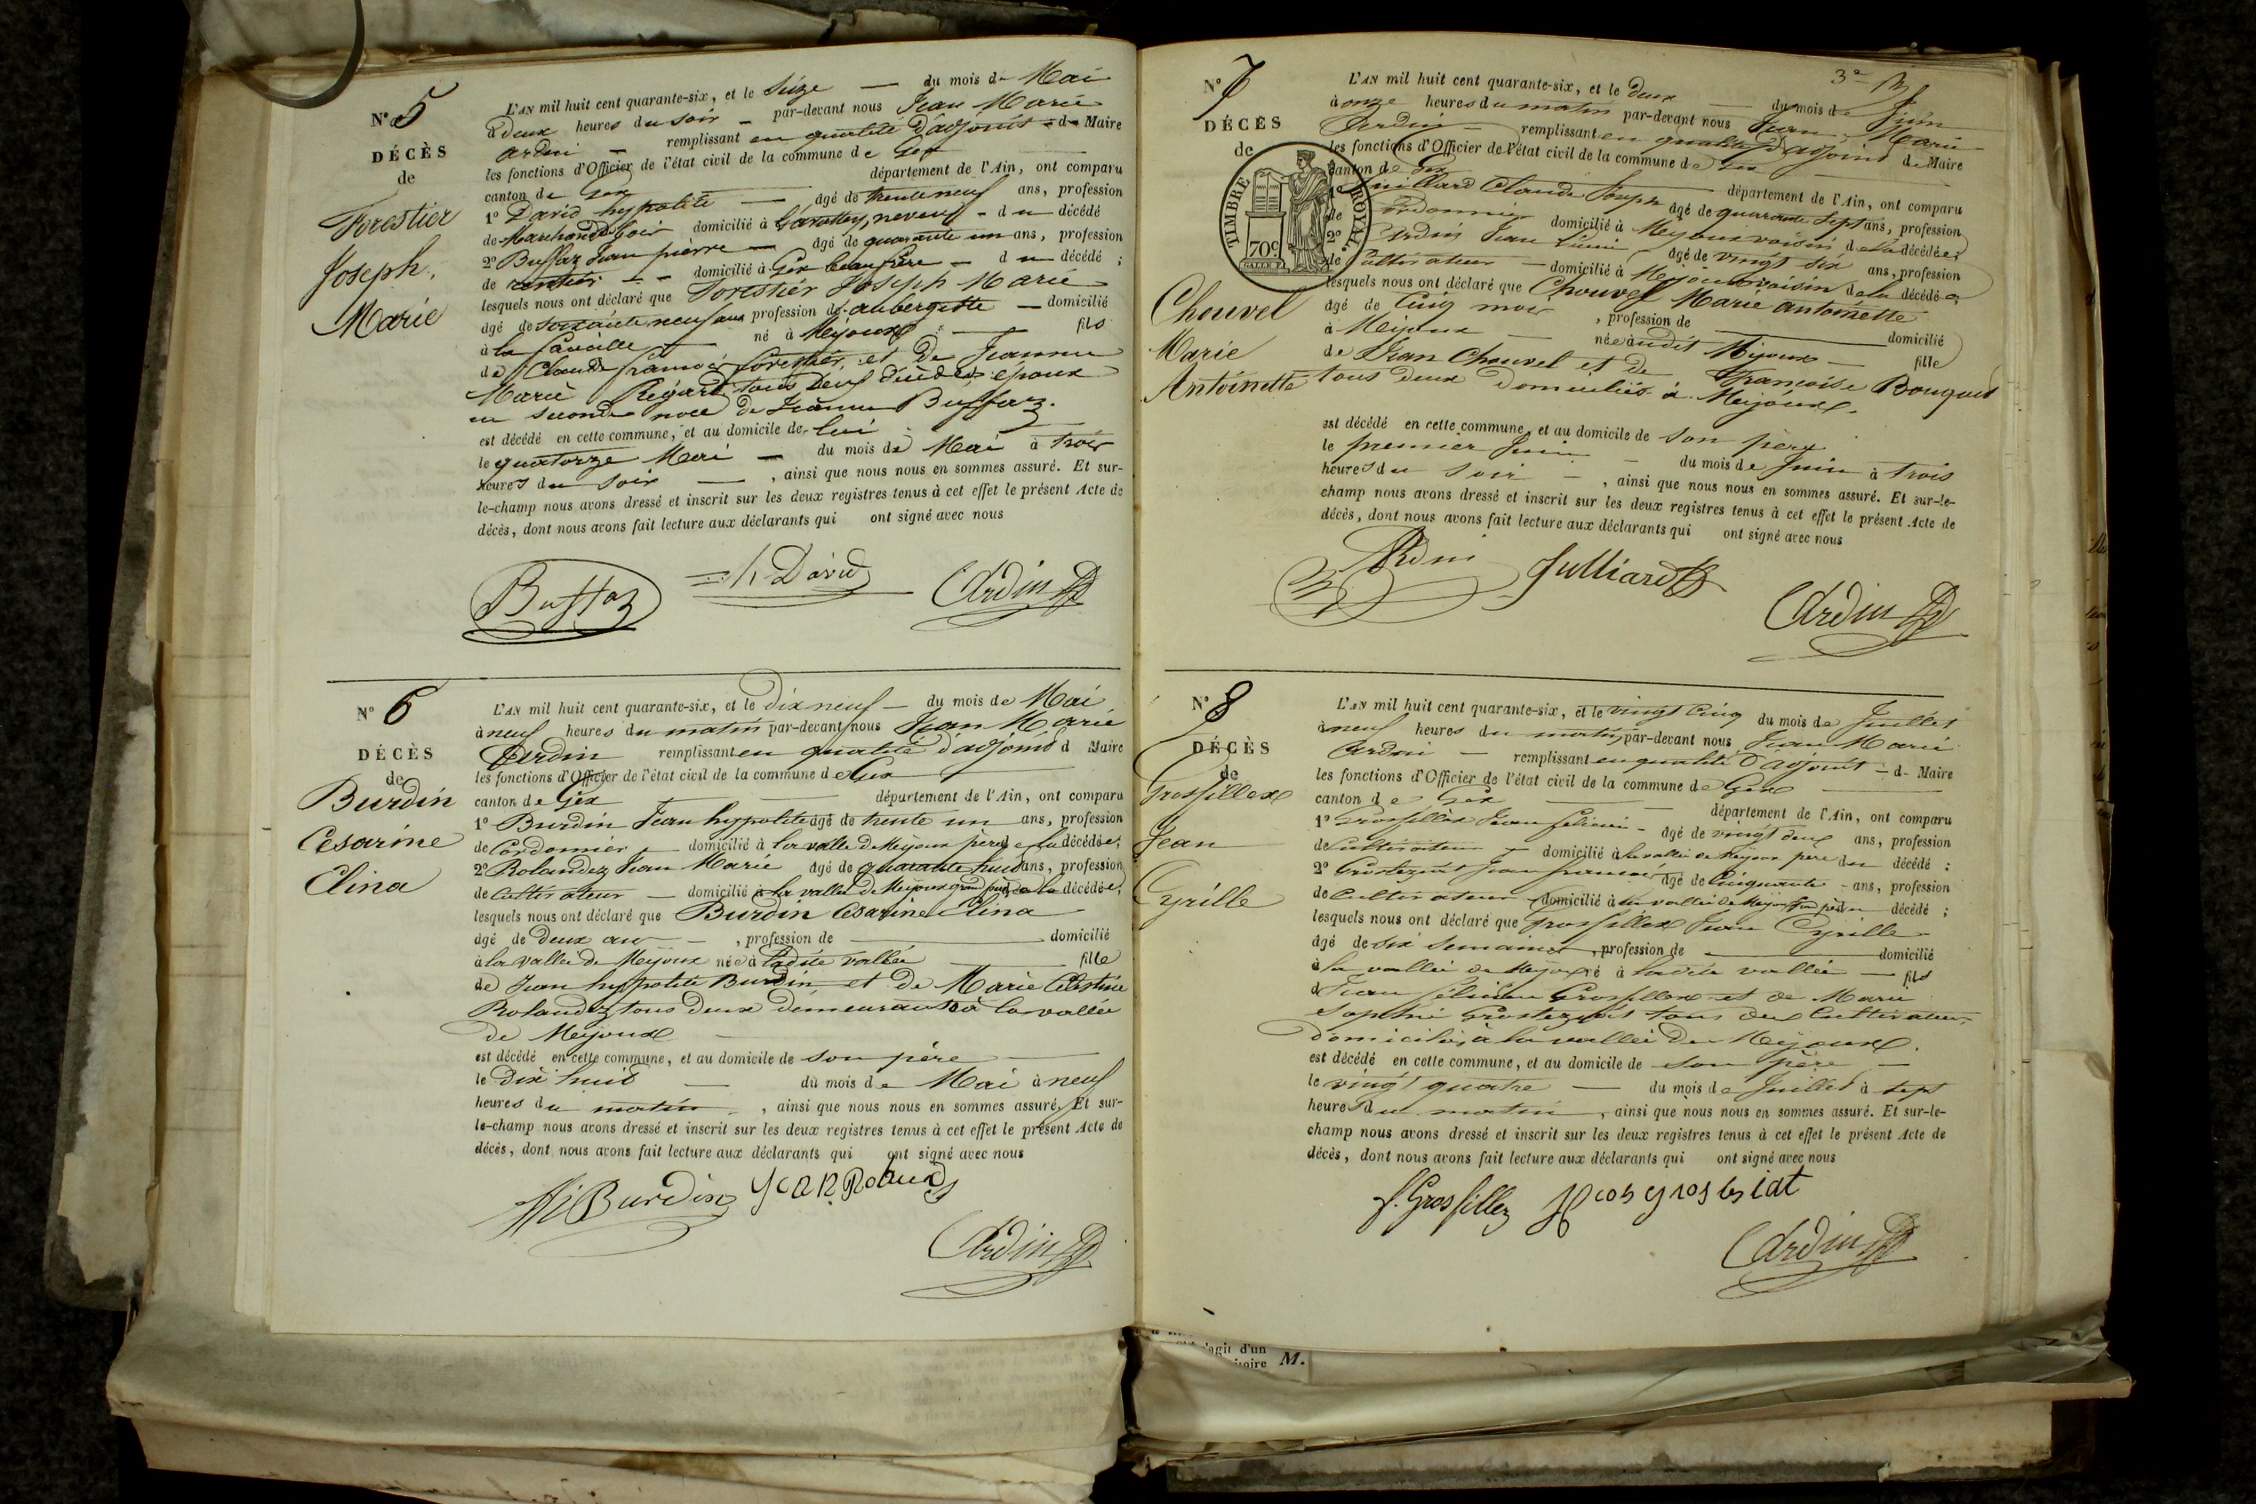 N° 5
DÉCÈS
de
Forestier
Joseph,
Marie
L'AN mil huit cent quarante-six, et le Seize — du mois de Mai
à deux heures du soir — par-devant nous Jean Marie
Ardin — remplissant en qualité d'adjoint d Maire
les fonctions d'Officier de l'état civil de la commune de Gex
canton de Gex — département de l'Ain, ont comparu
1° David hypolite — âgé de trente neuf ans, profession
de Marchand domicilié à neveu — du décédé
2° Buffaz Jean pierre — âgé de quarante un ans, profession
de rentier — domicilié à Gex beau frère — du décédé ;
lesquels nous ont déclaré que Forestier Joseph Marie
âgé de soixante neuf ans profession de aubergiste — domicilié
à la faucille — né à Mijoux — fils
de Claude françois forestier, et de Jeanne
Marie Régard tous deux décédés époux
en seconde noce de Jeanne Buffaz.
est décédé en cette commune, et au domicile de lui
le quatorze Mai — du mois de Mai à trois
heures du soir — , ainsi que nous nous en sommes assuré. Et sur-
le-champ nous avons dressé et inscrit sur les deux registres tenus à cet effet le présent Acte de
décès, dont nous avons fait lecture aux déclarants qui ont signé avec nous
Buffaz h David Ardin
N° 6
DÉCÈS
de
Burdin
Cesarine
Elina
L'AN mil huit cent quarante-six, et le dix neuf — du mois de Mai
à neuf heures du matin par-devant nous Jean Marie
Ardin remplissant en qualité d'adjoint d Maire
les fonctions d'Officier de l'état civil de la commune de Gex
canton de Gex — département de l'Ain, ont comparu
1° Burdin Jean hypolite âgé de trente un ans, profession
de Cordonnier — domicilié à la vallée de Mijoux père de la décédée ;
2° Rolandez Jean Marie âgé de quarante huit ans, profession
de Cultivateur — domicilié à la vallée de Mijoux grand père de la décédée ;
lesquels nous ont déclaré que Burdin Cesarine Elina
âgé de deux ans — , profession de — domicilié
à la vallée de Mijoux née à ladite vallée — fille
de Jean hypolite Burdin et de Marie Celestine
Rolandez tous deux demeurant à la vallée
de Mijoux —
est décédé en cette commune, et au domicile de son père —
le dix huit — du mois de Mai à neuf
heures du matin — , ainsi que nous nous en sommes assuré. Et sur-
le-champ nous avons dressé et inscrit sur les deux registres tenus à cet effet le présent Acte de
décès, dont nous avons fait lecture aux déclarants qui ont signé avec nous
Burdin
Ardin
3e
N° 7
DÉCÈS
de
TIMBRE ROYAL.
70c
Chouvel
Marie
Antoinette
L'AN mil huit cent quarante-six, et le deux — du mois de Juin
à onze heures du matin par-devant nous Jean Marie
Ardin — remplissant en qualité d'adjoint de Maire
les fonctions d'Officier de l'état civil de la commune de Gex
canton de Gex — département de l'Ain, ont comparu
1° Julliard Claude Joseph âgé de quarante sept ans, profession
de Cordonnier domicilié à Mijoux voisin de la décédée
2° Ardin Jean âgé de vingt six ans, profession
de Cultivateur — domicilié à Mijoux voisin de la décédée
lesquels nous ont déclaré que Chouvel Marie antoinette
âgé de Cinq mois , profession de — domicilié
à Mijoux — née audit Mijoux — fille
de Jean Chouvel et de Françoise Bouquet
tous deux domiciliés à Mijoux.
est décédé en cette commune, et au domicile de son père
le premier Juin — du mois de Juin à trois
heures du soir — , ainsi que nous nous en sommes assuré. Et sur-le-
champ nous avons dressé et inscrit sur les deux registres tenus à cet effet le présent Acte de
décès, dont nous avons fait lecture aux déclarants qui ont signé avec nous
Ardin Julliard
Ardin
N° 8
DÉCÈS
de
Grosfillex
Jean
Cyrille
L'AN mil huit cent quarante-six, et le vingt Cinq du mois de Juillet
à neuf heures du matin par-devant nous Jean Marie
Ardin — remplissant en qualité d'adjoint — d- Maire
les fonctions d'Officier de l'état civil de la commune de Gex —
canton de Gex — département de l'Ain, ont comparu
1° Grosfillex Jean felicien — âgé de vingt deux ans, profession
de Cultivateur — domicilié à la vallée de Mijoux père du décédé :
2° Jean françois âgé de Cinquante - ans, profession
de Cultivateur domicilié à la vallée de Mijoux décédé ;
lesquels nous ont déclaré que Grosfillex Jean Cyrille
âgé de six semaines , profession de — domicilié
à la vallée de Mijoux né à ladite vallée — fils
d Jean félicien Grosfillex et de Marie
tous deux Cultivateurs
domiciliés à la vallée de Mijoux.
est décédé en cette commune, et au domicile de son père —
le vingt quatre — du mois de Juillet à sept
heures du matin — , ainsi que nous nous en sommes assuré. Et sur-le-
champ nous avons dressé et inscrit sur les deux registres tenus à cet effet le présent Acte de
décès, dont nous avons fait lecture aux déclarants qui ont signé avec nous
f. Grosfillex
Ardin
'agit d'un
M.